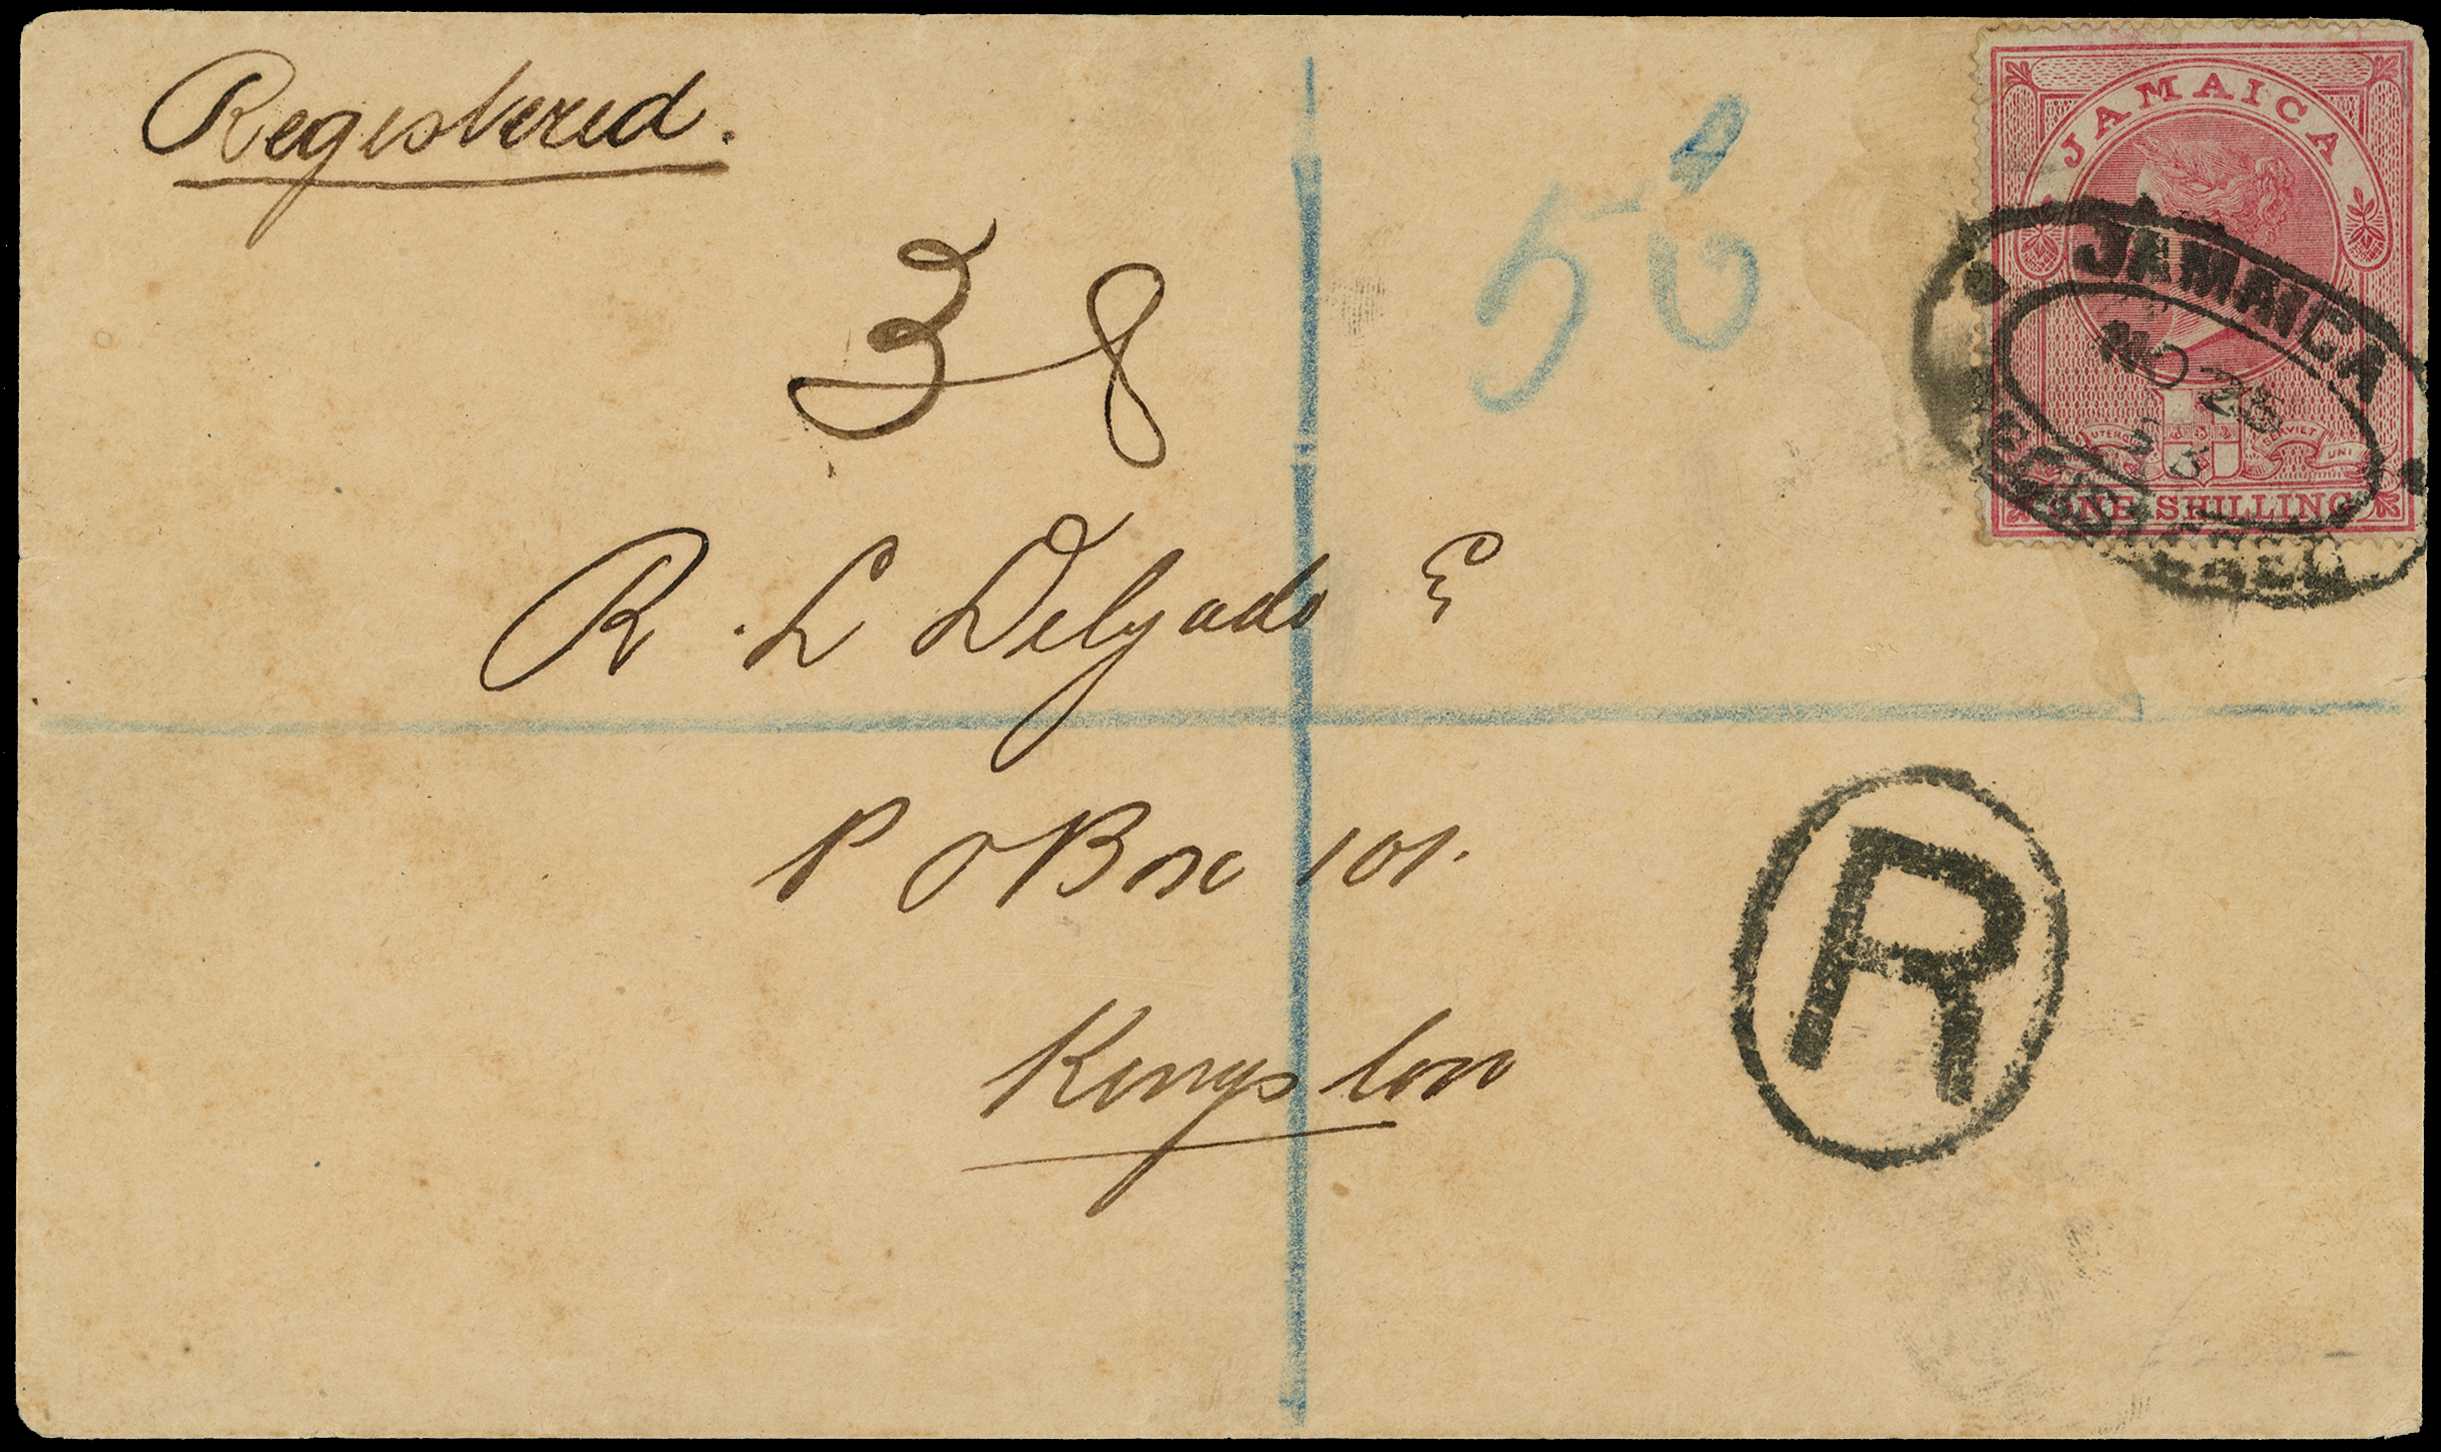 Registered.
JAMAICA
JAMAICA
NO 28
UTERQUE SERVIET UNI
ONE SHILLING
38
56
R. L Delgado E
P O Box 101.
R
Kingston